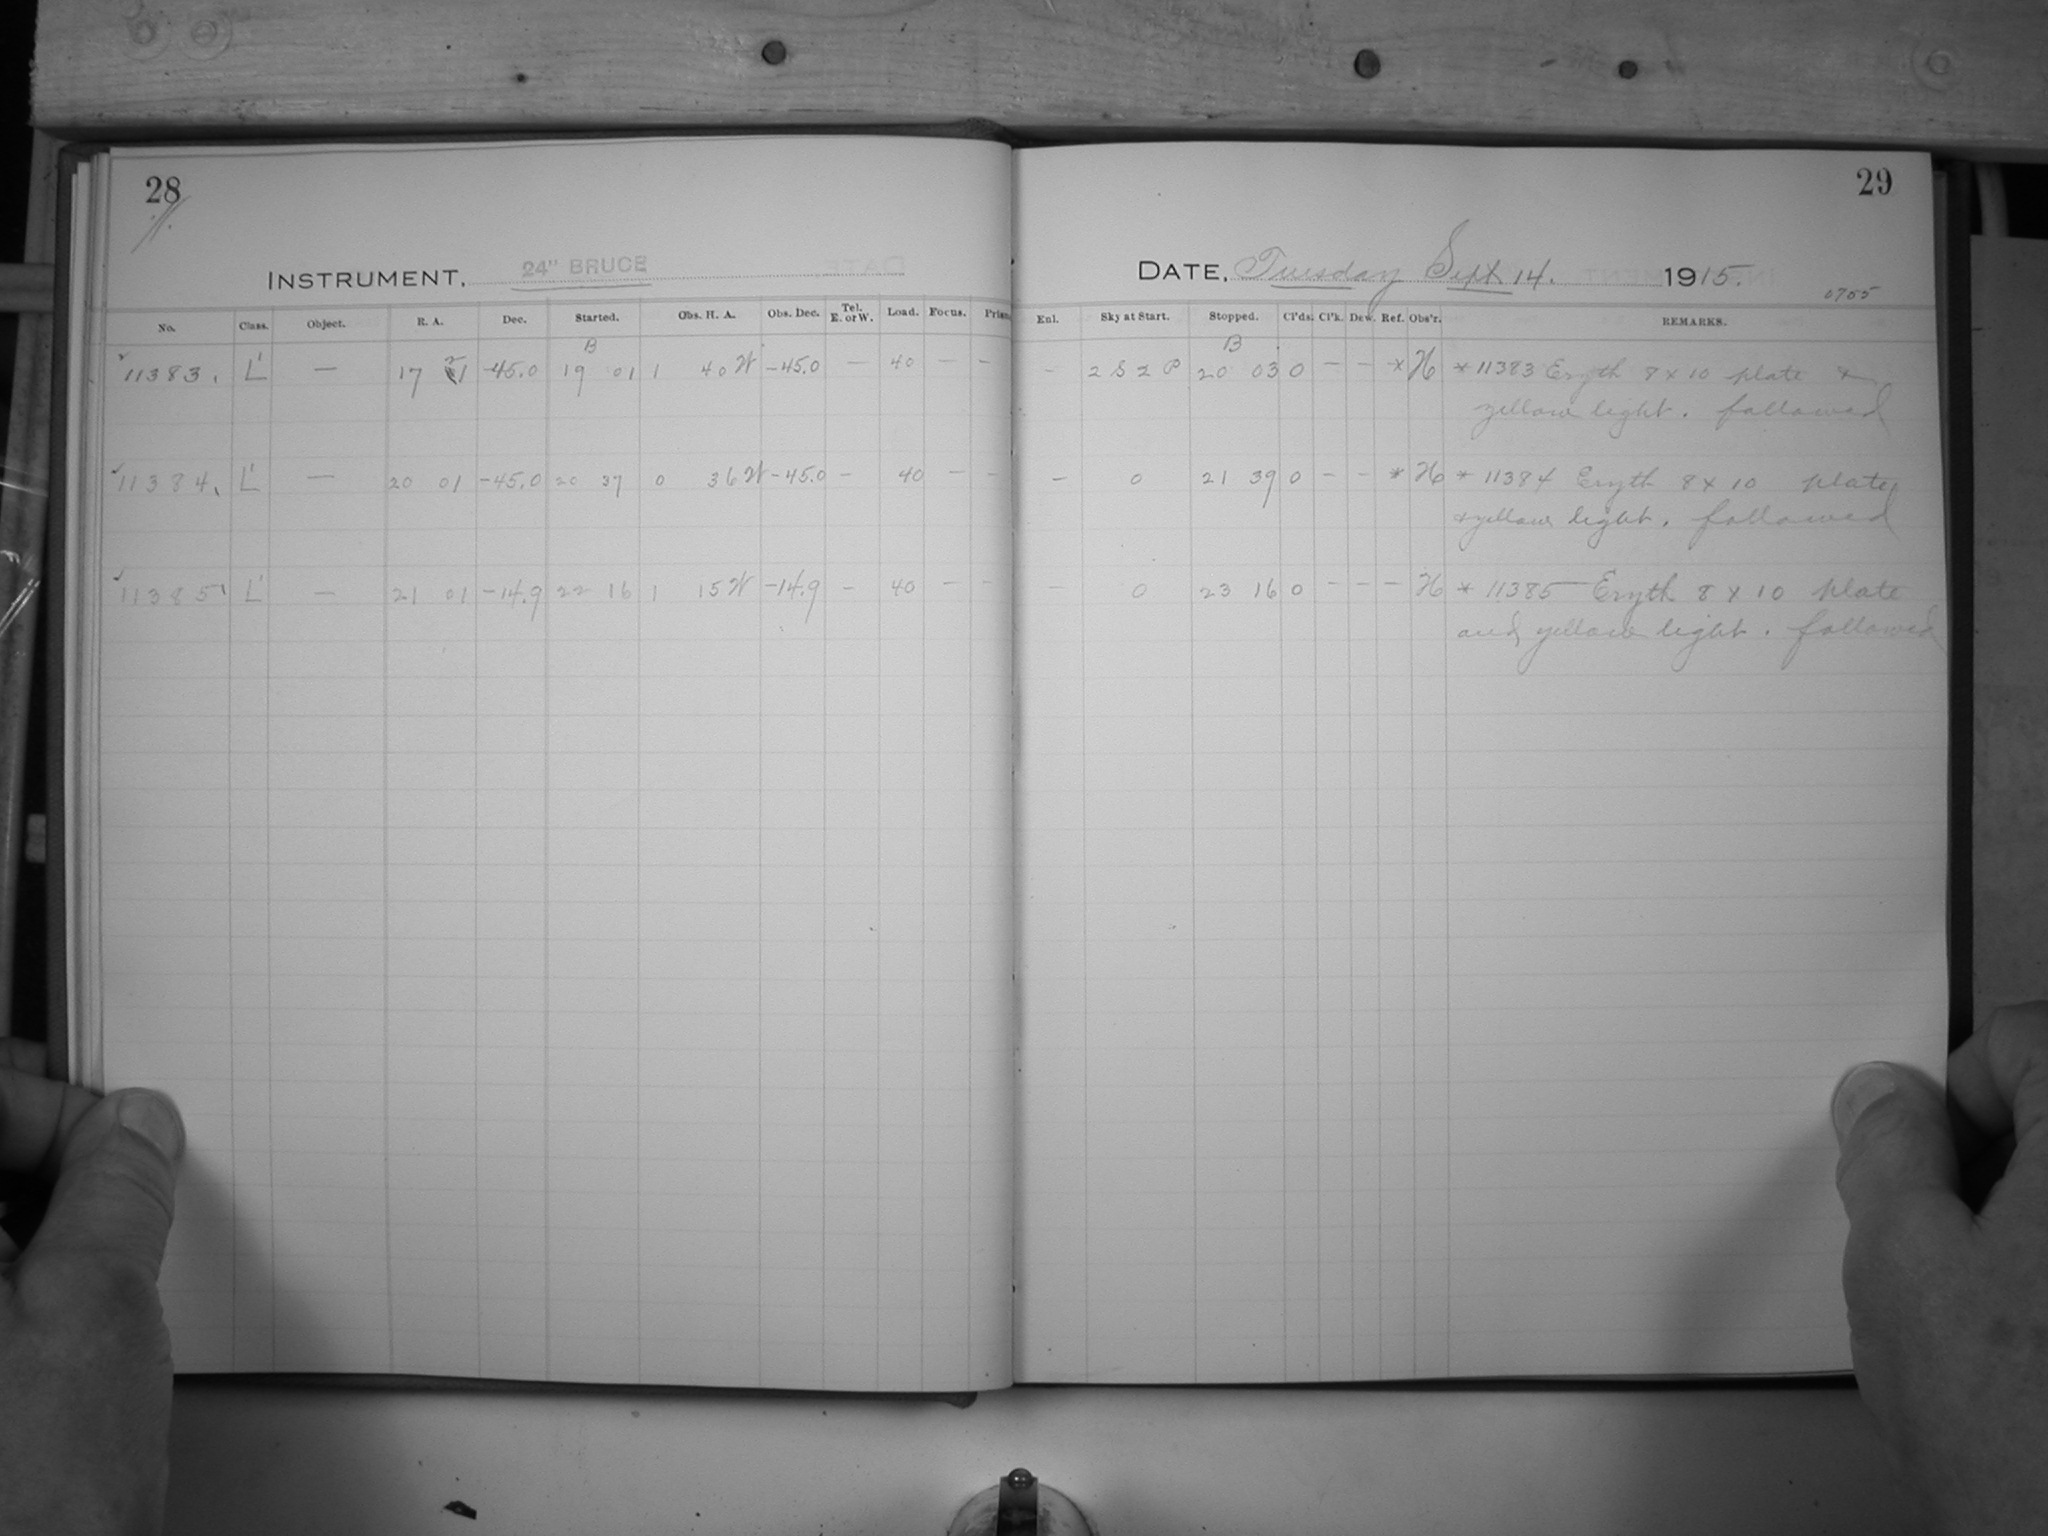 28
29
INSTRUMENT, 24" BRUCE
DATE, Tuesday Sept 14. 1915.
0755
No. Class. Object. R. A. Dec. Started. Obs. H. A. Obs. Dec. Tel. E. or W. Load. Focus. Prism
Enl. Sky at Start. Stopped. Cl'ds. Cl'k. Dew. Ref. Obs'r. REMARKS.
B B
11383. L' — 17 21 -45.0 19 01 1 40 W -45.0 — 40 — — - 2 S 2 P 20 03 0 — — * H * 11383 Eryth 8 x 10 plate &
yellow light. followed
11384. L' — 20 01 -45.0 20 37 0 36 W -45.0 — 40 — — — 0 21 39 0 — — * H * 11384 Eryth 8 x 10 plate
& yellow light. followed
11385 L' — 21 01 -14.9 22 16 1 15 W -14.9 — 40 — — — 0 23 16 0 — — — H * 11385 Eryth 8 x 10 plate
and yellow light. followed